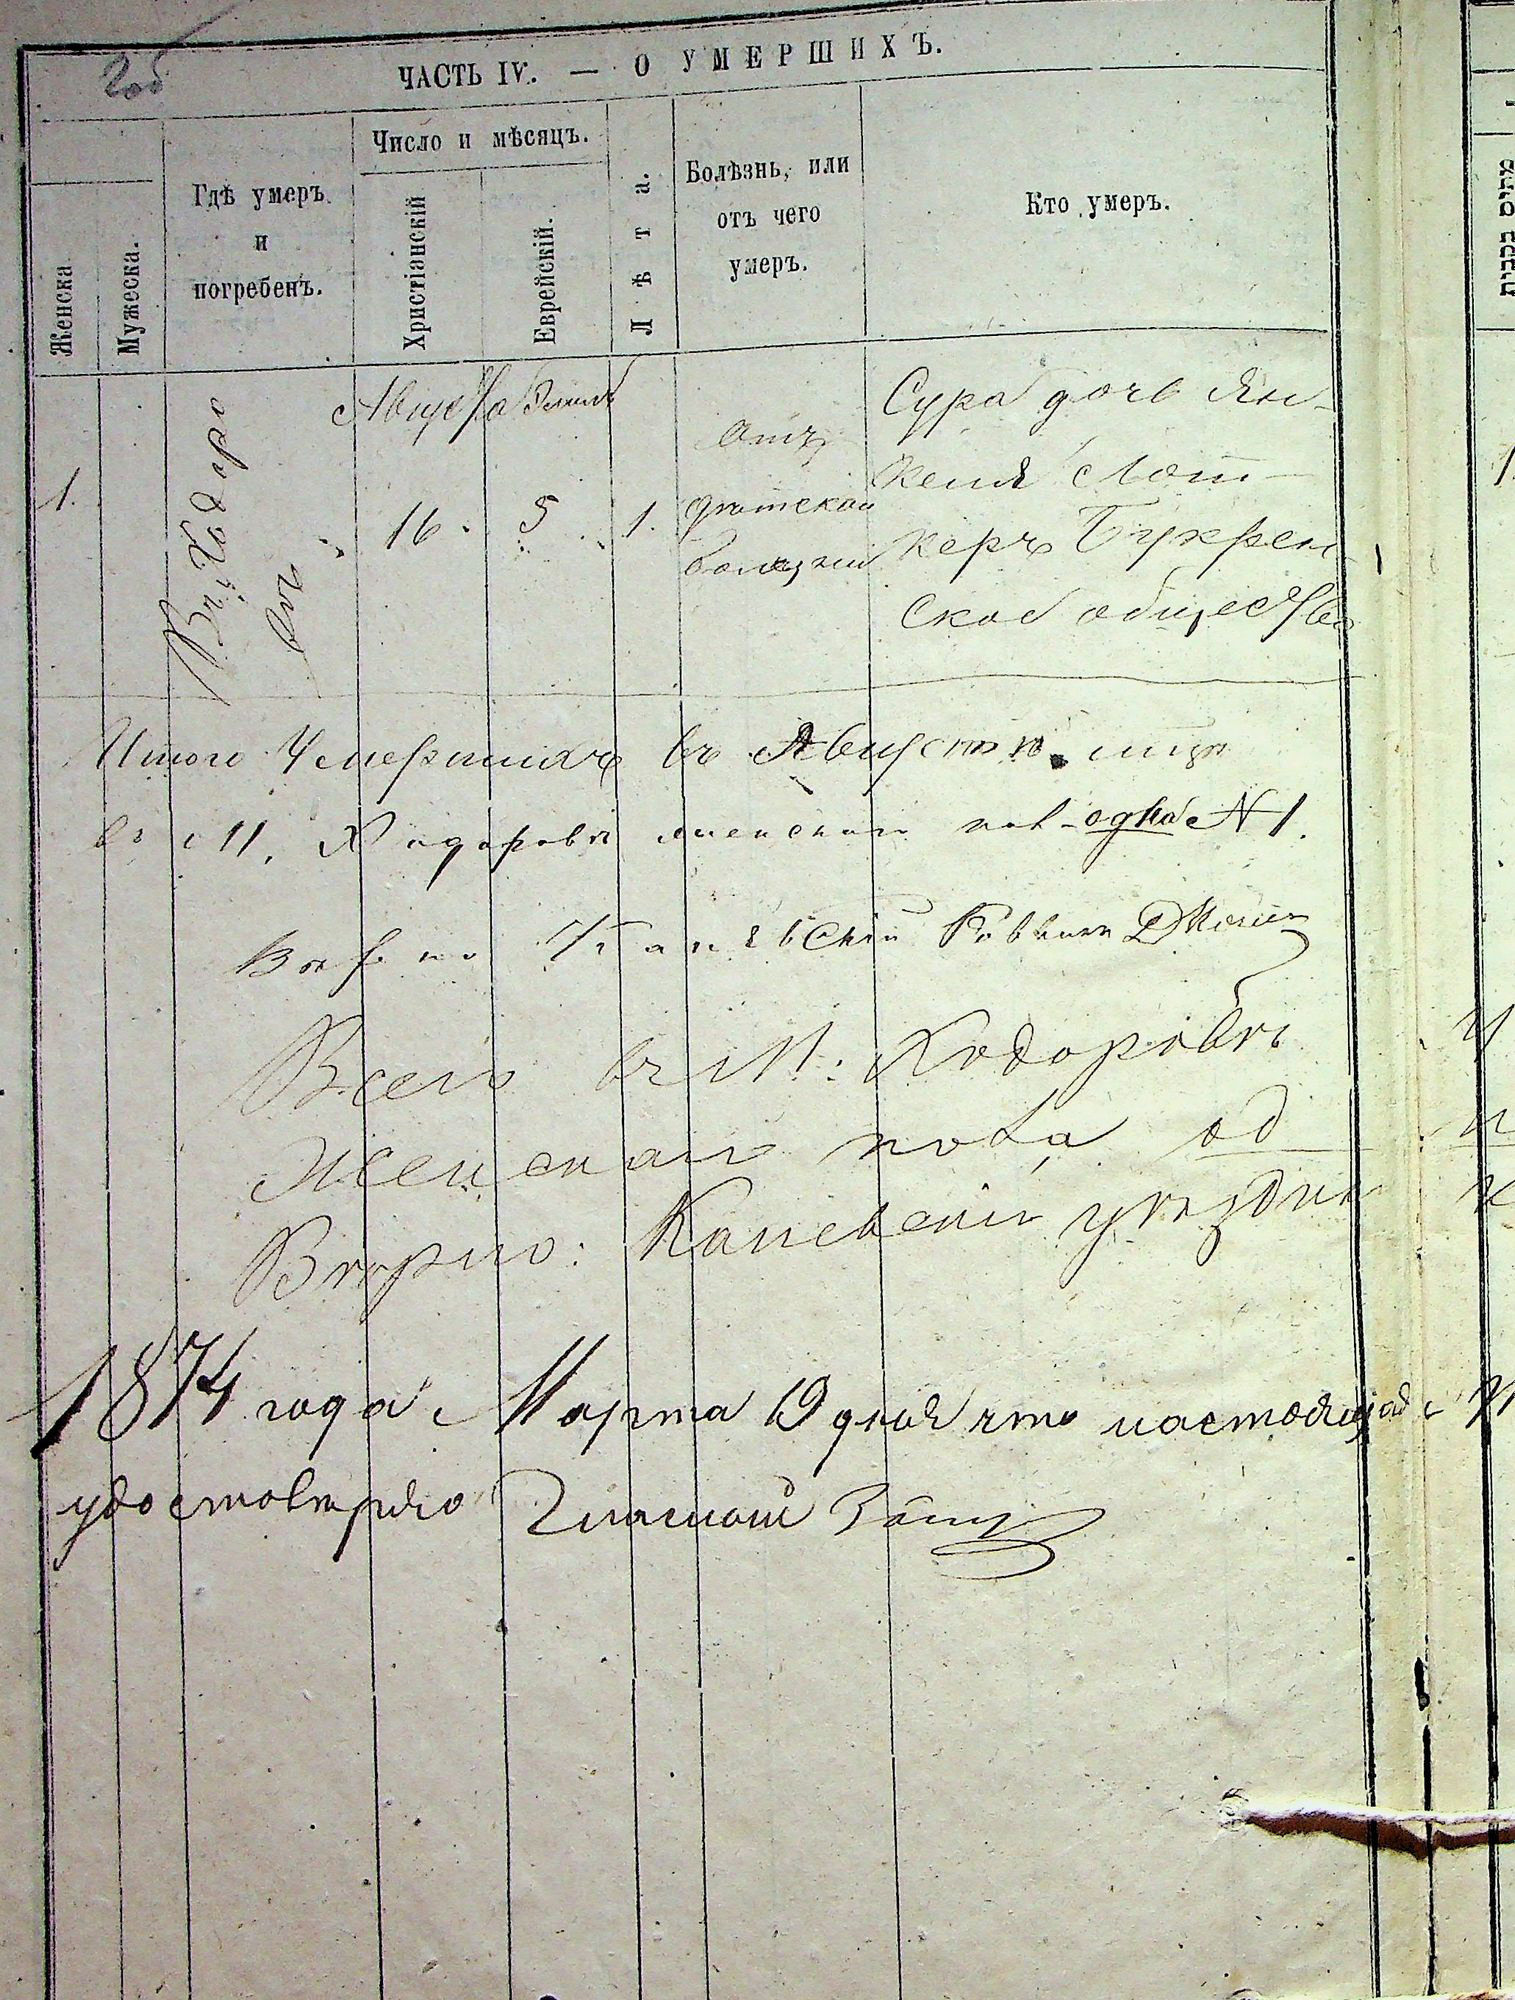 2об
ЧАСТЬ IV. — О УМЕРШИХЪ.
Женска
Мужеска.
Гдѣ умеръ
и
погребенъ.
Число и мѣсяцъ.
Христіанскій
Еврейскій.
Лѣта.
Болѣзнь, или
отъ чего
умеръ.
Кто умеръ.
1.
Въ Ходоро
вѣ
Августа Элилъ
16. 5
1.
Отъ
дѣтской
болезни
Сура дочь Ян-
келя
керъ Букрин
скаго общества
Итого Умершихъ въ Августѣ мцѣ
въ М. Ходоровѣ женскаго пол. одна №1.
Вѣрно Каневскій Раввинъ
Всего въ М: Ходоровѣ
женскаго пола од
Вѣрно: Каневскій уѣздн
1874 года Марта 19 дня что настоящая
удостовѣряю Гласный